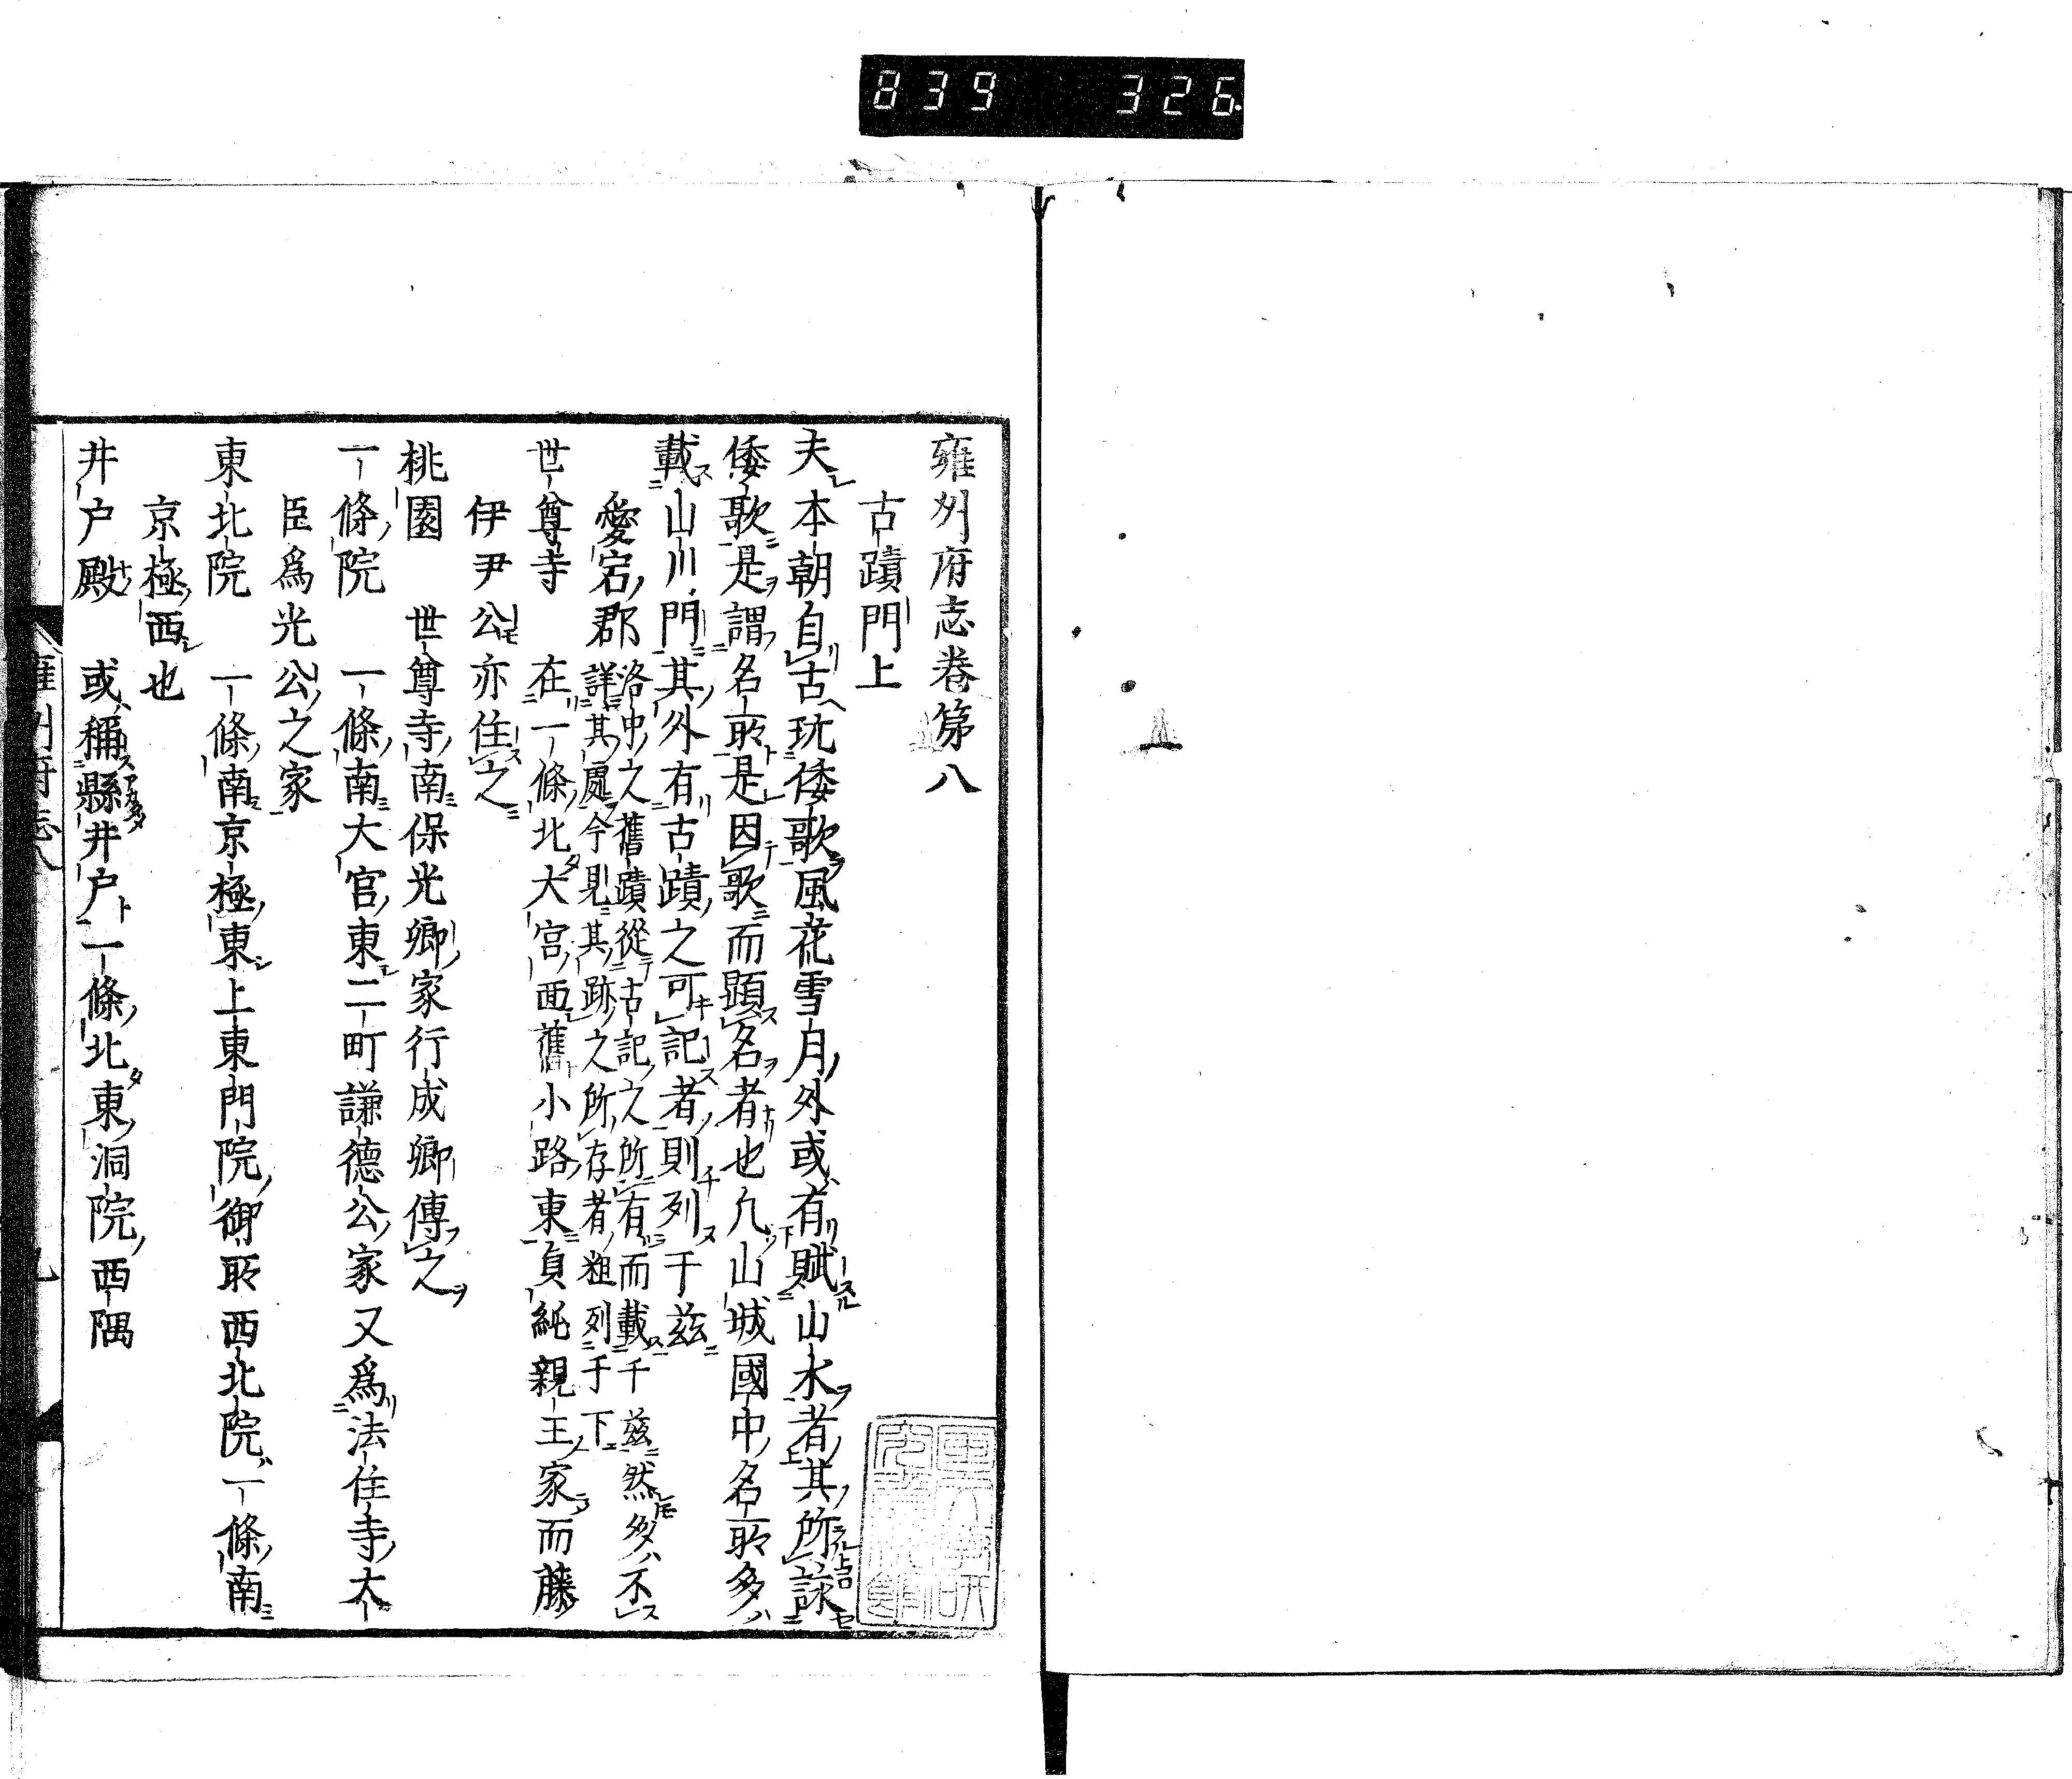 839 326
雍州府志卷第八
古蹟門上
夫本朝自古玩倭歌風花雪月外或有賦山水者其所詠
倭歌是謂名所是因歌而顕名者也凢山城國中名所多
載山川門其外有古蹟之可記者則列于茲
愛宕郡
洛中之舊蹟從古記之所有而載于茲然多不
詳其處今見其跡之所存者粗列于下
世尊寺 在一條北大宮西舊小路東貞純親王家而藤
伊尹公亦住之
桃園 世尊寺南保光卿家行成卿傳之
一條院 一條南大宮東二町謙德公家又為法住寺太
臣為光公之家
東北院 一條南京極東上東門院御所西北院一條南
京極西也
井户殿 或稱縣井户一條北東洞院西隅
雍州府志八